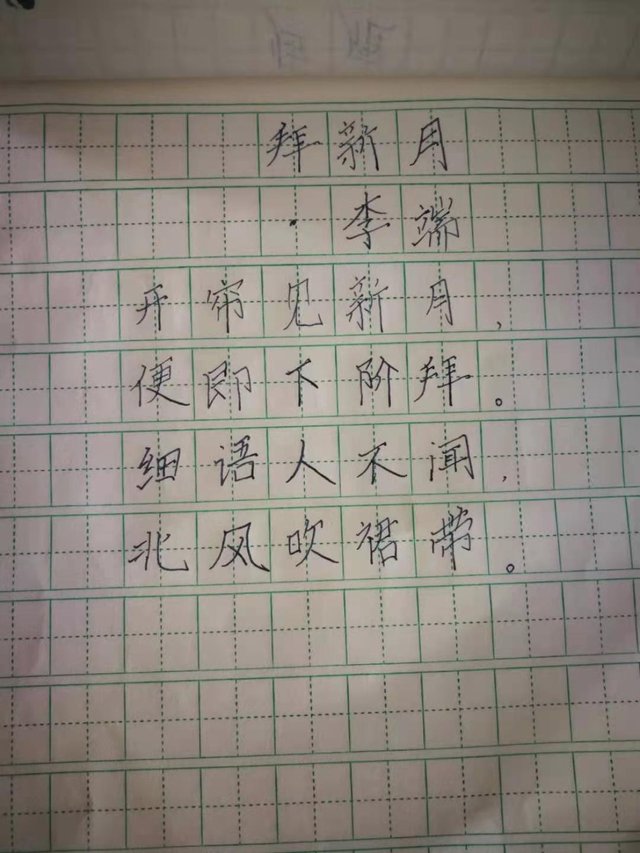 拜新月
·李端
开帘见新月,
便即下阶拜。
细语人不闻,
北风吹裙带。